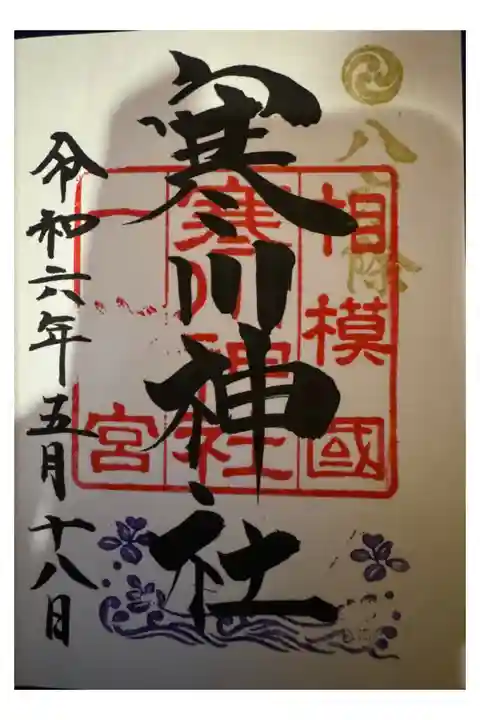 八 除
相模國
寒川神社
一宮
寒川神社
令和六年五月十八日